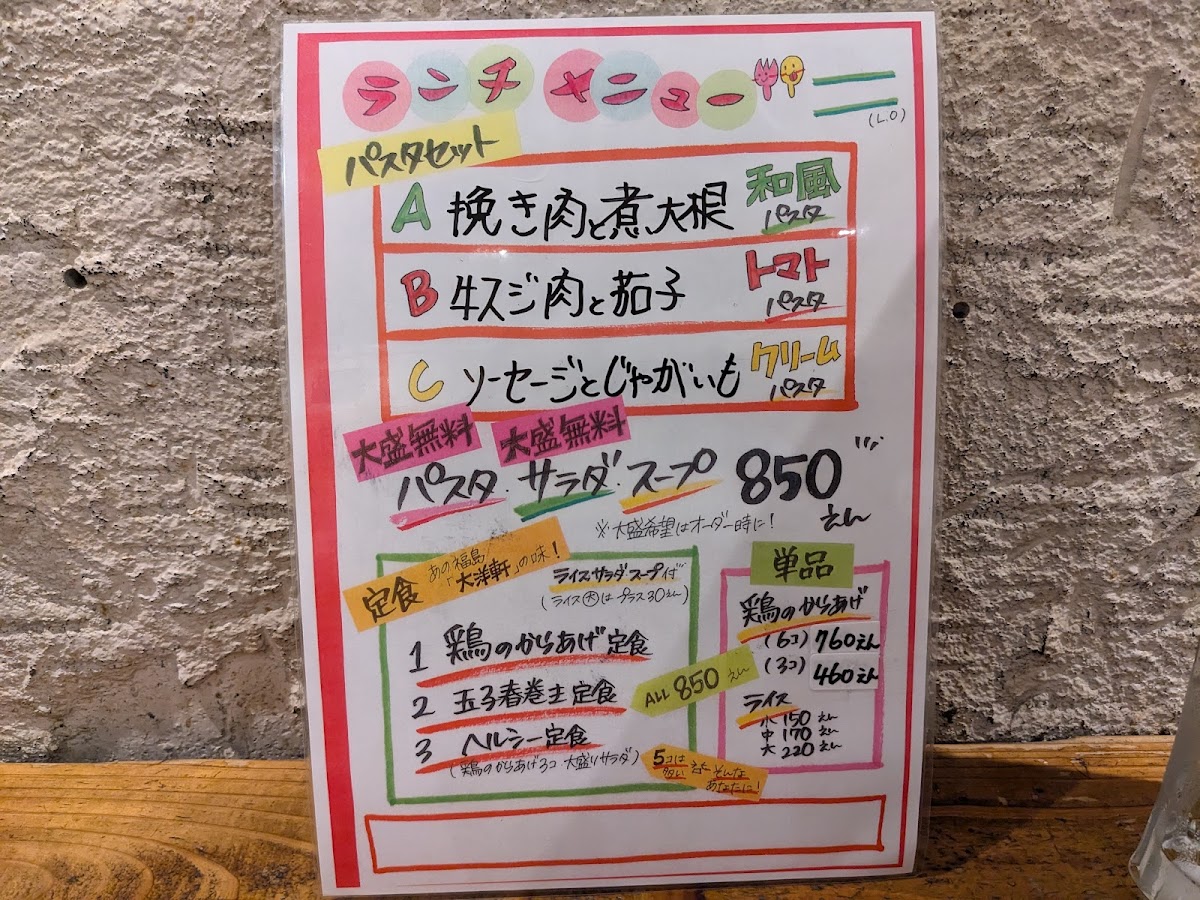 ランチメニュー
(L.O)
パスタセット
A 挽き肉と煮大根 和風パスタ
B 牛スジ肉と茄子 トマトパスタ
C ソーセージとじゃがいも クリームパスタ
大盛無料 大盛無料
パスタ・サラダ・スープ 850えん
※大盛希望はオーダー時に!
定食 あの福島「大洋軒」の味!
ライス・サラダ・スープ付
(ライス大はプラス30えん)
1 鶏のからあげ定食
2 玉子春巻主定食
3 ヘルシー定食
(鶏のからあげ3コ 大盛りサラダ)
ALL 850えん
5コは多い
そんなあなたに!
単品
鶏のからあげ
(6コ) 760えん
(3コ) 460えん
ライス
小 150えん
中 170えん
大 220えん